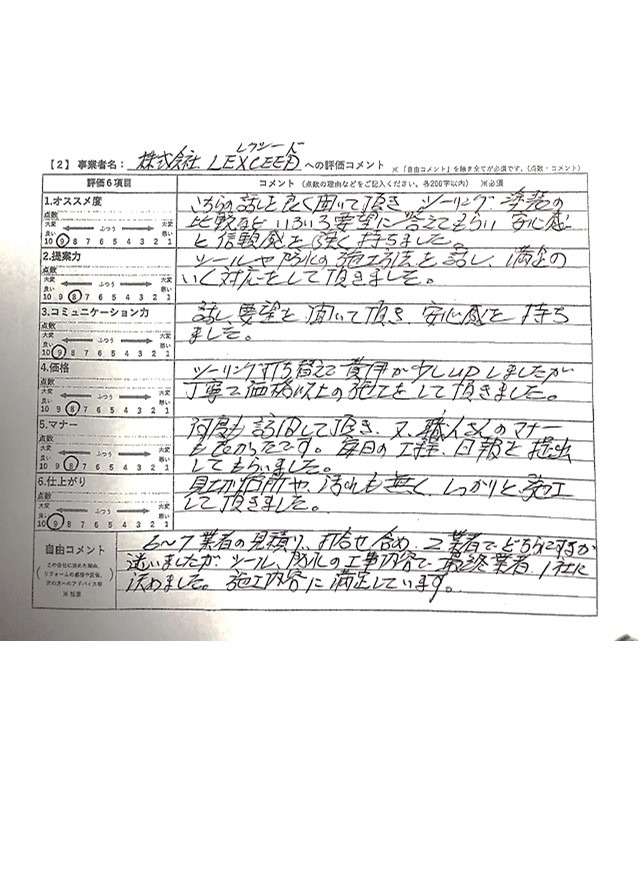 レクシード
【2】事業者名： 株式会社 LEXCEED への評価コメント ※「自由コメント」を除き全てが必須です。（点数・コメント）
評価6項目 コメント（点数の理由などをご記入ください。各200字以内） ※必須
1.オススメ度
点数
大変良い ふつう 大変悪い
10 9 8 7 6 5 4 3 2 1
の話しを良く聞いて頂き ツーリング、塗装の
比較などいろいろ要望に答えてもらい 安心感
と信頼感を強く持ちました。
2.提案力
点数
大変良い ふつう 大変悪い
10 9 8 7 6 5 4 3 2 1
ツールや防水の施工方法を話し、満足の
いく対応をして頂きました。
3.コミュニケーション力
点数
大変良い ふつう 大変悪い
10 9 8 7 6 5 4 3 2 1
話し要望を聞いて頂き、安心感を持ち
ました。
4.価格
点数
大変良い ふつう 大変悪い
10 9 8 7 6 5 4 3 2 1
ツーリング打ち替えで費用が少しUPしましたが
丁寧で価格以上の施工をして頂きました。
5.マナー
点数
大変良い ふつう 大変悪い
10 9 8 7 6 5 4 3 2 1
何度も訪問して頂き、又、職人さんのマナー
も良かったです。毎日の工程、日報を提出
してもらいました。
6.仕上がり
点数
大変良い ふつう 大変悪い
10 9 8 7 6 5 4 3 2 1
箇所や、汚れも無く、しっかりと施工
して頂きました。
自由コメント
この会社に決めた理由、
リフォームの感想や反省、
次の方へのアドバイス等
※任意
6〜7業者の見積り、打合せ含め、2業者でどちらにするか
迷いましたが、ツール、防水の工事内容で、最終業者、1社に
決めました。施工内容に満足しています。